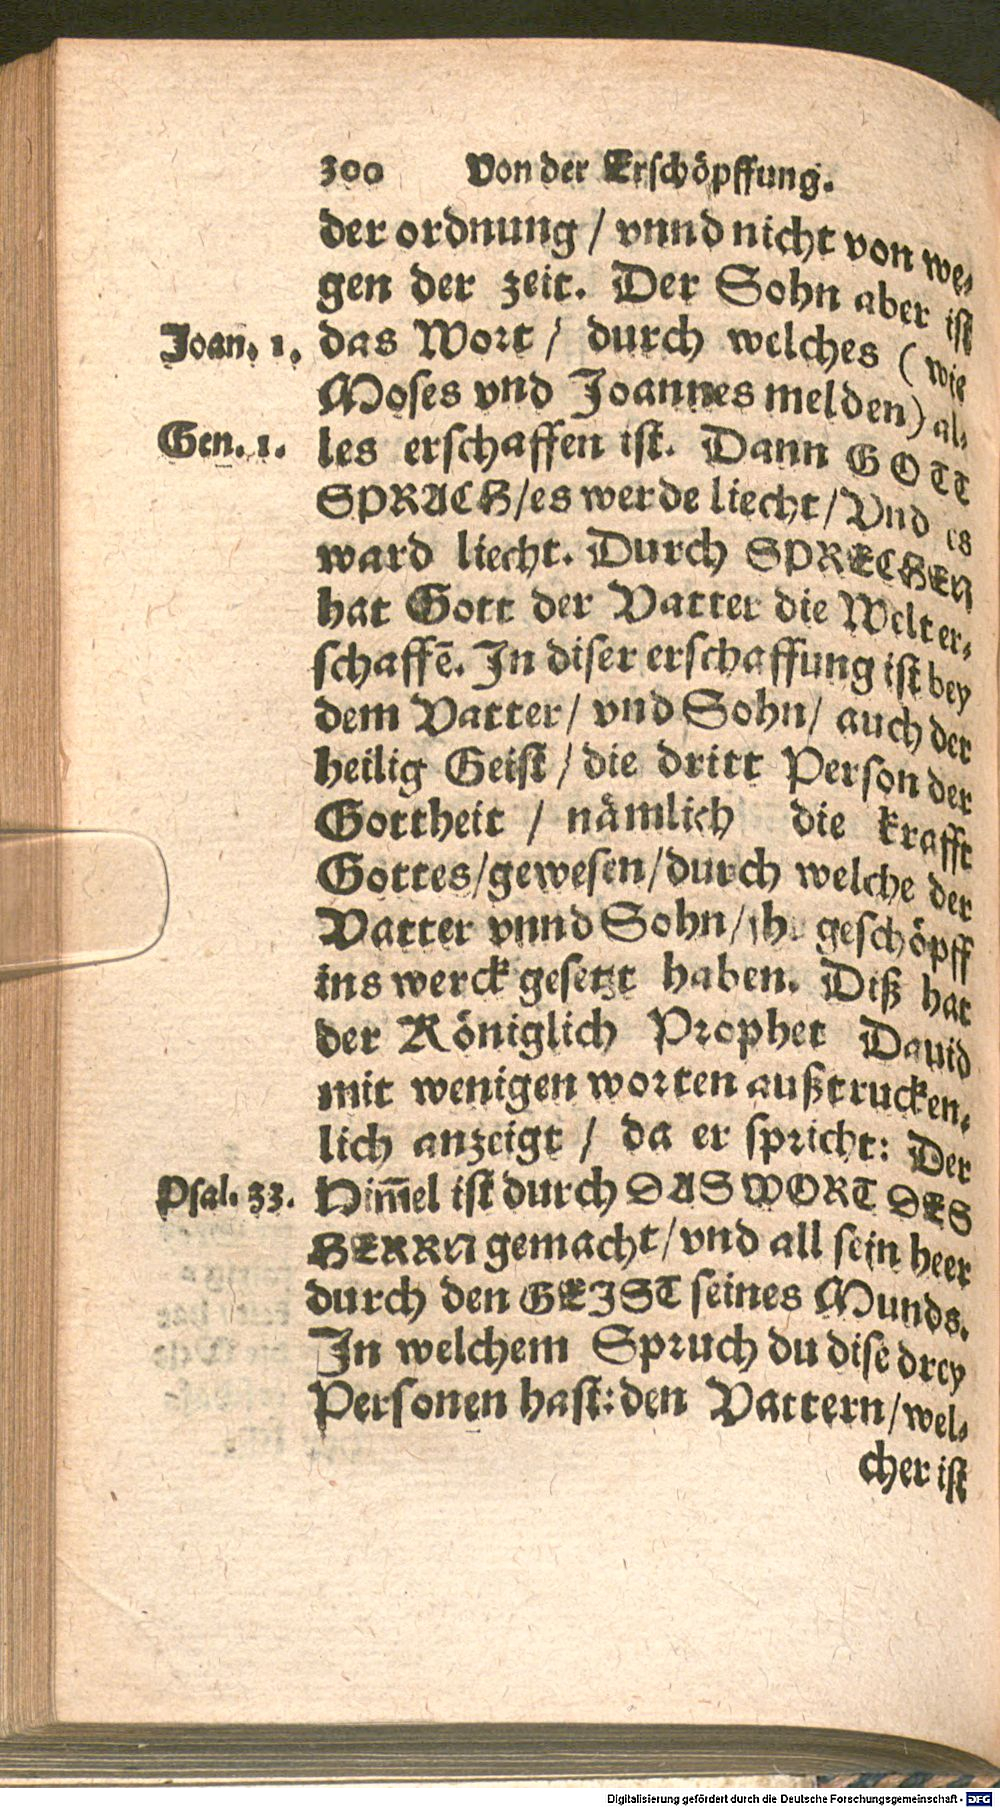 300 Von der Erschöpffung.
der ordnung / vnnd nicht von we-
gen der zeit. Der Sohn aber ist
Joan. 1. das Wort / durch welches ( wie
Moses vnd Joannes melden) al-
Gen. 1. les erschaffen ist. Dann GOTT
SPRACH/es werde liecht/Vnd es
ward liecht. Durch SPRECHEN
hat Gott der Vatter die Welt er-
schaffē. In diser erschaffung ist bey
dem Vatter/ vnd Sohn/ auch der
heilig Geist / die dritt Person der
Gottheit / nämlich die krafft
Gottes/gewesen/durch welche der
Vatter vnnd Sohn/ geschöpff
ins werck gesetzt haben. Diß hat
der Königlich Prophet Dauid
mit wenigen worten außtrucken-
lich anzeigt / da er spricht: Der
Psal. 33. Him̄el ist durch DAS WORT DES
HERRN gemacht/vnd all sein heer
durch den GEIST seines Munds.
In welchem Spruch du dise drey
Personen hast: den Vattern/wel-
cher ist
Digitalisierung gefördert durch die Deutsche Forschungsgemeinschaft - DFG